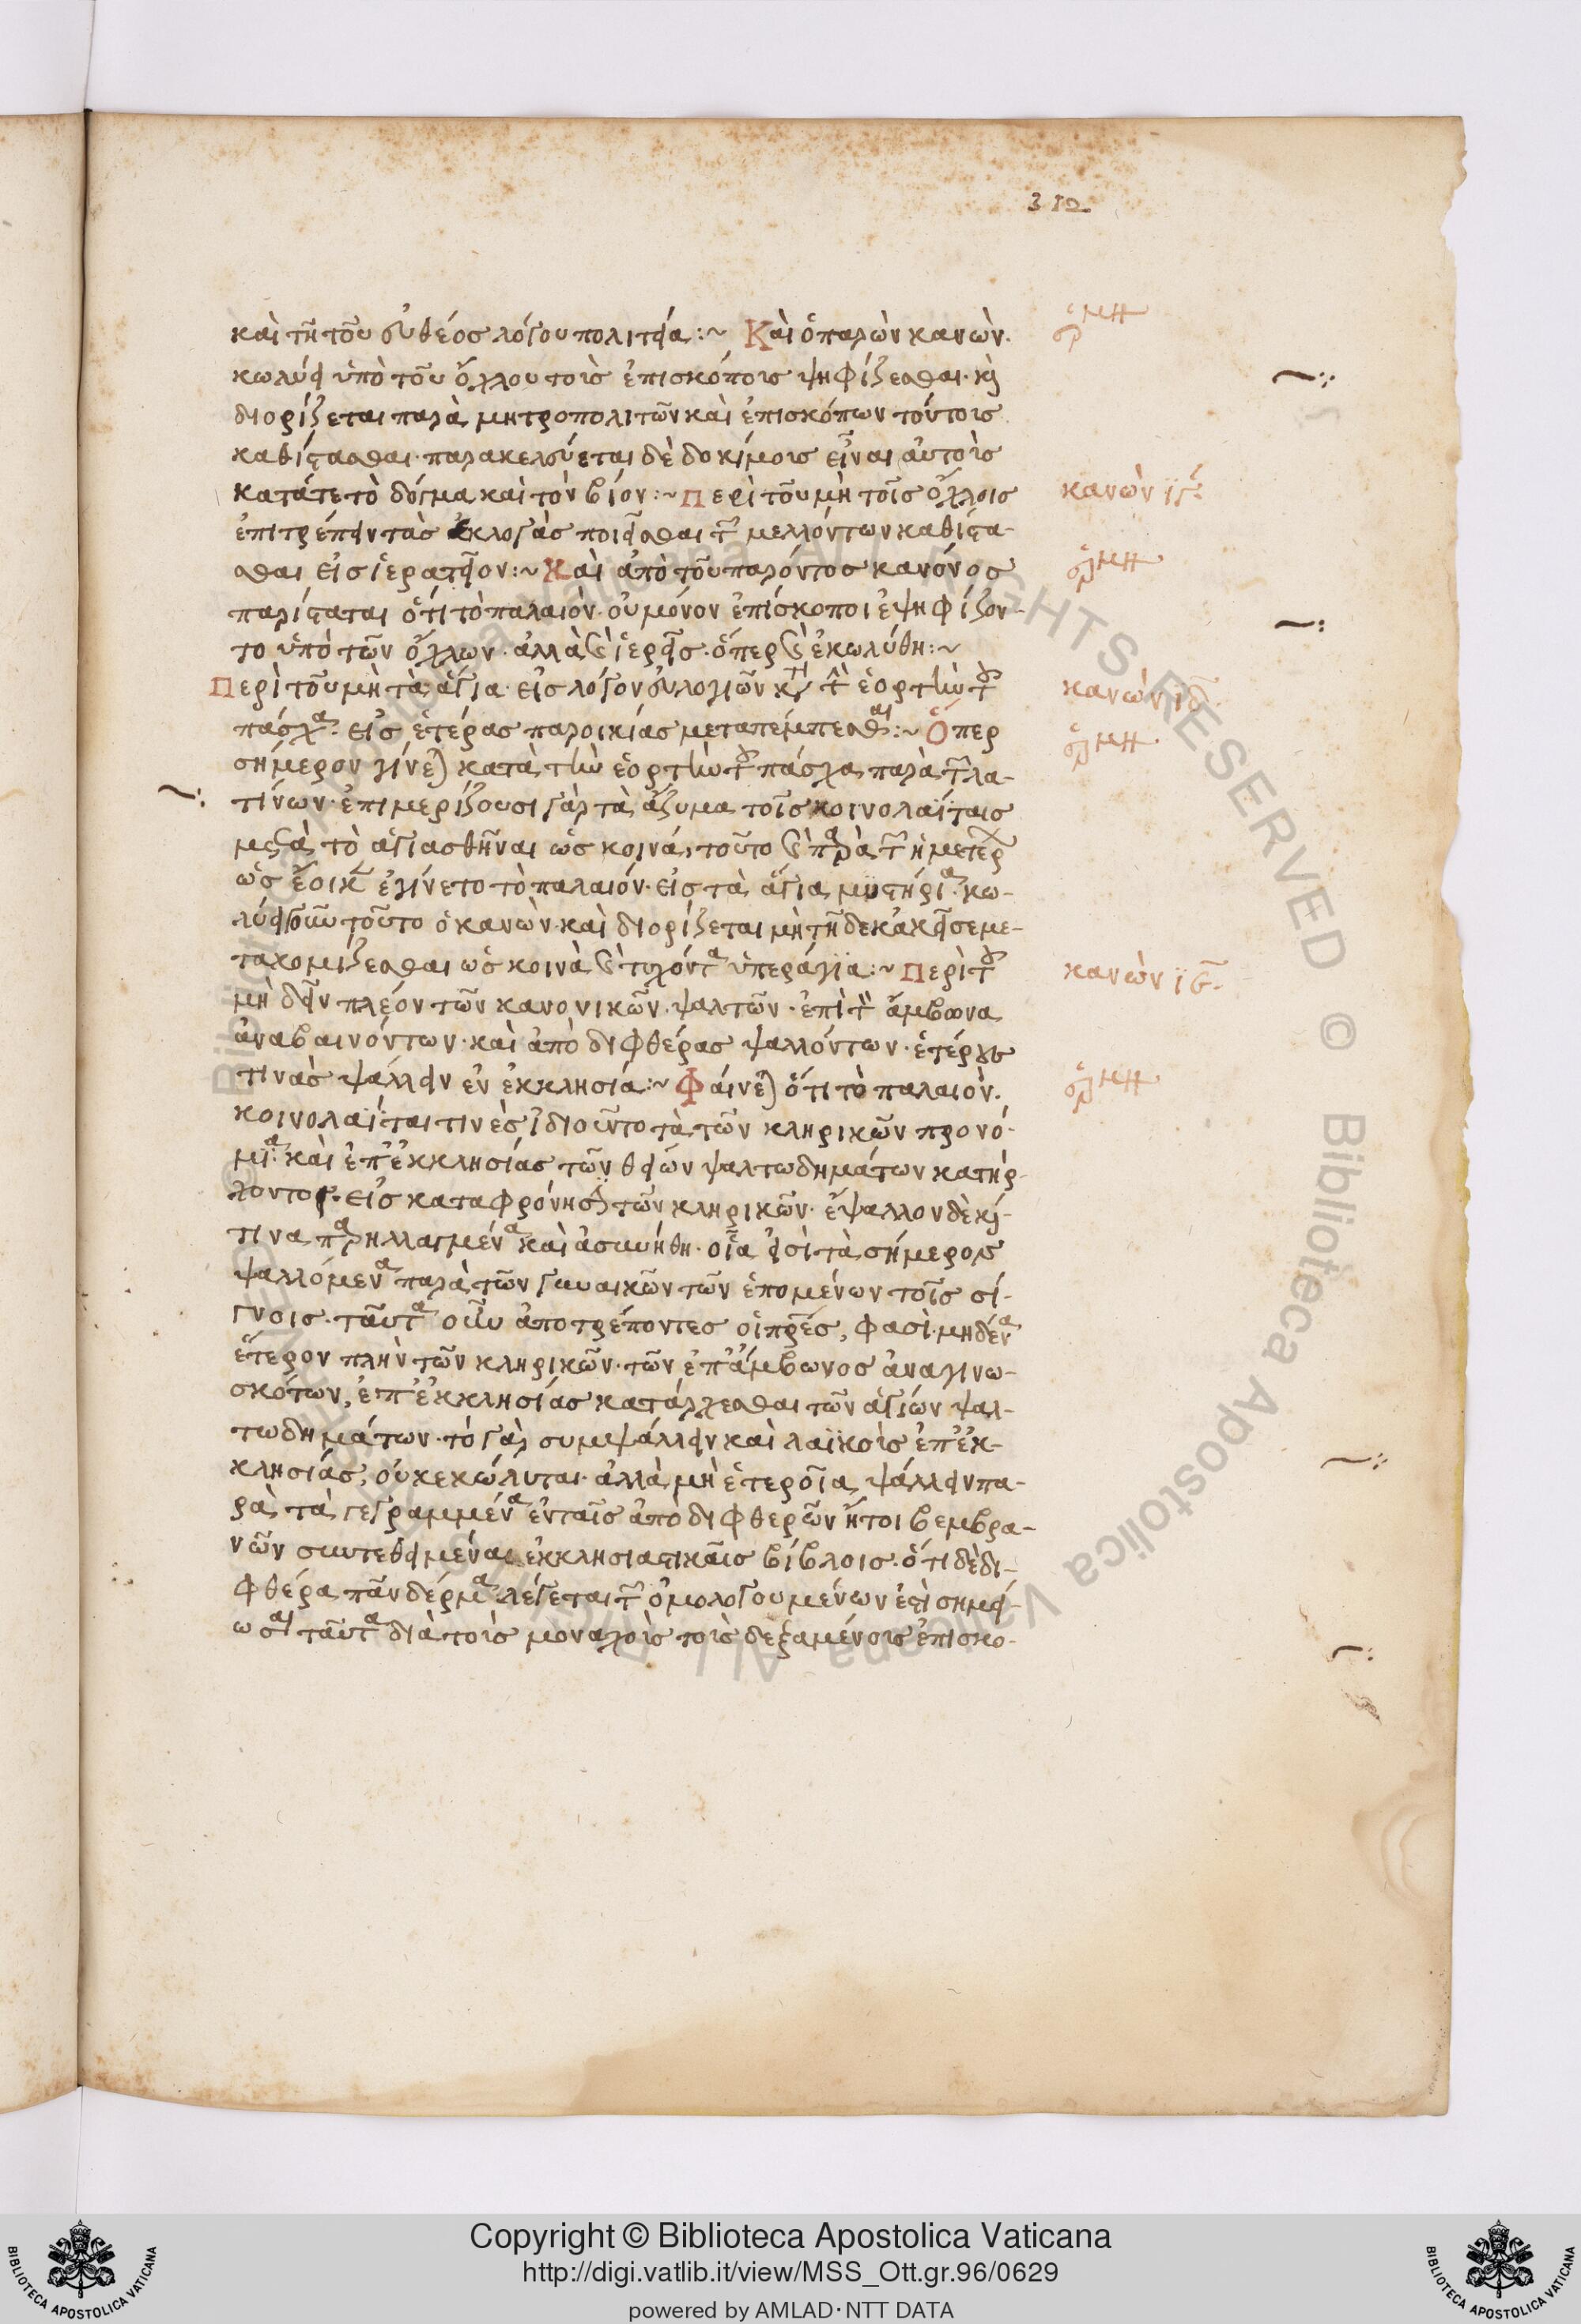 312
καὶ τῆ τοῦ εὐθέος λόγου πολιτεία :~ Καὶ ὁ παρὼν κανὼν.
ἑρμη
κωλύει ὑπὸ τοῦ ὄχλου τοῖς ἐπισκόποις ψηφίζεσθαι· κὶ
διορίζεται παρὰ μητροπολιτῶν καὶ ἐπισκόπων τούτοις
καθίστασθαι· παρακελεύεται δὲ δοκίμοις εἶναι αὐτοῖς
κατάτε τὸ δόγμα καὶ τὸν βίον :~ Περὶ τοῦ μὴ τοῖς ὄχλοις
κανὼν ιγ
ἐπιτρέπειν τὰς ἐκλογὰς ποιεῖσθαι τῶν μελλόντων καθίστα-
σθαι εἰς ἱερατεῖον :~ Καὶ ἀπὸ τοῦ παρόντος κανόνος
ἑρμη
παρίσταται ὅτι τὸ παλαιὸν· οὐ μόνον ἐπίσκοποι ἐψηφίζον-
το ὑπὸ τῶν ὄχλων· ἀλλὰ καὶ ἱερεῖς· ὅπερ καὶ ἐκωλύθη :~
Περὶ τοῦ μὴ τὰ ἅγια· εἰς λόγον εὐλογιῶν κατὰ τὴν ἑορτὴν τοῦ
κανὼν ιδ
πάσχα· εἰς ἑτέρας παροικίας μεταπέμπεσθαι :~ Ὅπερ
ἑρμη
σήμερον γίνεται κατὰ τὴν ἑορτὴν τοῦ πάσχα παρὰ τῶν λα-
τίνων· ἐπιμερίζουσι γὰρ τὰ ἄζυμα τοῖς κοινολαΐταις
μετὰ τὸ ἁγιασθῆναι ὡς κοινά, τοῦτο καὶ παρὰ τῶν ἡμετέρων
ὡς ἔοικεν ἐγίνετο τὸ παλαιόν· εἰς τὰ ἅγια μυστήρια· κω-
λύει οὖν τοῦτο ὁ κανὼν· καὶ διορίζεται μὴ τῆδε κἀκεῖσε με-
τακομίζεσθαι ὡς κοινὰ καὶ τυχόντα ὑπεράγια :~ Περὶ τοῦ
κανὼν ιε
μὴ δεῖν πλέον τῶν κανονικῶν ψαλτῶν· ἐπὶ τὸν ἄμβωνα
ἀναβαινόντων· καὶ ἀπὸ διφθέρας ψαλλόντων· ἑτέρους
τινὰς ψάλλειν ἐν ἐκκλησία :~ Φαίνεται ὅτι τὸ παλαιὸν.
ἑρμη
κοινολαΐται τινὲς ἰδιοῦντο τὰ τῶν κληρικῶν προνό-
μια· καὶ ἐπ' ἐκκλησίας τῶν θείων ψαλτωδημάτων κατήρ-
χοντο· εἰς καταφρόνησιν τῶν κληρικῶν· ἔψαλλον δὲ κὶ
τινα παρηλλαγμένα καὶ ἀσυνήθη· οἷα εἰσὶ τὰ σήμερον
ψαλλόμενα παρὰ τῶν γυναικῶν τῶν ἑπομένων τοῖς σί-
γνοις· ταῦτα οὖν ἀποτρέποντες οἱ πρες, φασὶ· μηδένα
ἕτερον πλὴν τῶν κληρικῶν· τῶν ἐπ' ἄμβωνος ἀναγινω-
σκότων, ἐπ' ἐκκλησίας κατάρχεσθαι τῶν ἁγίων ψαλ-
τωδημάτων· τὸ γὰρ συμψάλλειν καὶ λαϊκοῖς ἐπ' ἐκ-
κλησίας, οὐ κεκώλυται· ἀλλὰ μὴ ἑτεροῖα ψάλλειν πα-
ρὰ τὰ γεγραμμένα ἐν ταῖς ἀπὸ διφθερῶν ἤτοι βεμβρα-
νῶν συντεθειμέναις ἐκκλησιαστικαῖς βίβλοις· ὅτι δὲ δι-
φθέρα πᾶν δέρμα λέγεται τῶν ὁμολογουμένων ἐστὶ σημεί-
ωσαι ταῦτα διὰ τοῖς μοναχοῖς τοῖς δεξαμένοις ἐπισκο-
© Biblioteca Apostolica Vaticana ALL RIGHTS RESERVED
Copyright © Biblioteca Apostolica Vaticana
http://digi.vatlib.it/view/MSS_Ott.gr.96/0629
powered by AMLAD · NTT DATA
BIBLIOTECA APOSTOLICA VATICANA
BIBLIOTECA APOSTOLICA VATICANA